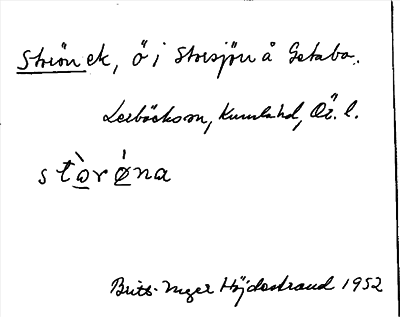 Storön etc, ö i Storsjön å Getabo.
Lerbäcks sn, Kumla hd, Ör. l.
stòrǿna
Britt-Inger Höjdestrand 1952